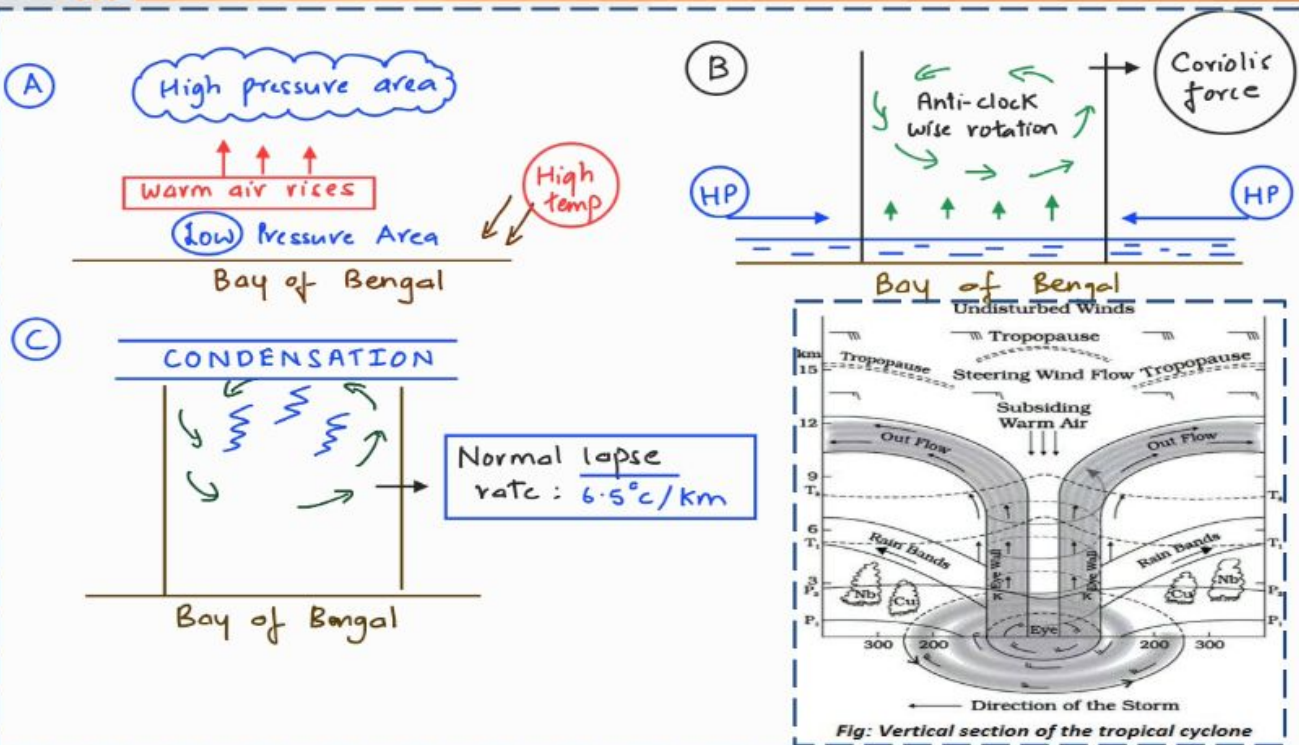 A
High pressure area
Warm air rises
Low Pressure Area
High
temp
Bay of Bengal
B
Coriolis
force
Anti-clock
wise rotation
HP
HP
Bay of Bengal
C
CONDENSATION
Normal lapse
rate: 6.5°c/km
Bay of Bengal
Undisturbed Winds
Tropopause
km
Tropopause
Tropopause
15
Steering Wind Flow
Subsiding
Warm Air
12
Out Flow
Out Flow
9
6
T₁
T₁
Rain Bands
Rain Bands
Eye Wall
Eye Wall
3
Nb
Cu
Cu
Nb
P₁
P₁
Eye
300
200
200
300
Direction of the Storm
Fig: Vertical section of the tropical cyclone